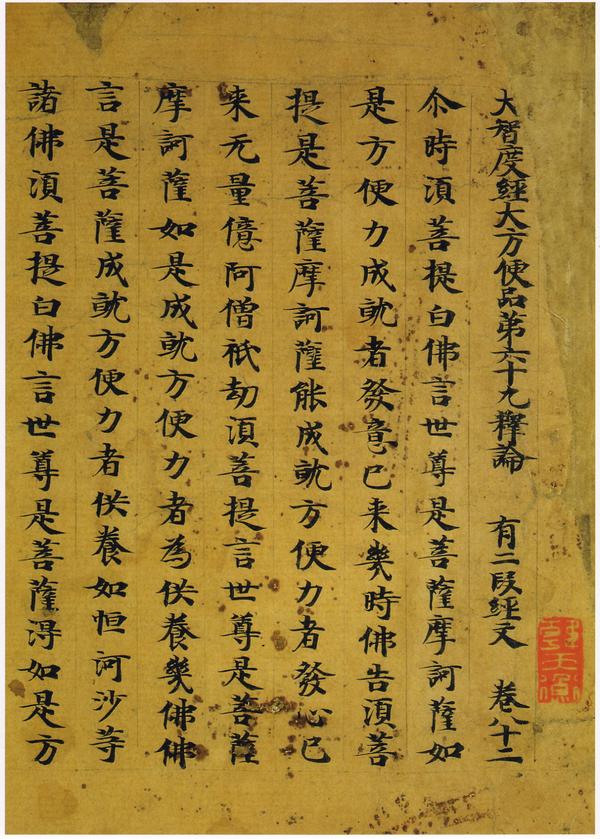 大智度經大方便品第六十九釋論 有二段經文 卷八十二
尒時須菩提白佛言世尊是菩薩摩訶薩如
是方便力成就者發意已来幾時佛告須菩
提是菩薩摩訶薩能成就方便力者發心已
来无量億阿僧祇劫須菩提言世尊是菩薩
摩訶薩如是成就方便力者為供養幾佛佛
言是菩薩成就方便力者供養如恒河沙等
諸佛須菩提白佛言世尊是菩薩得如是方